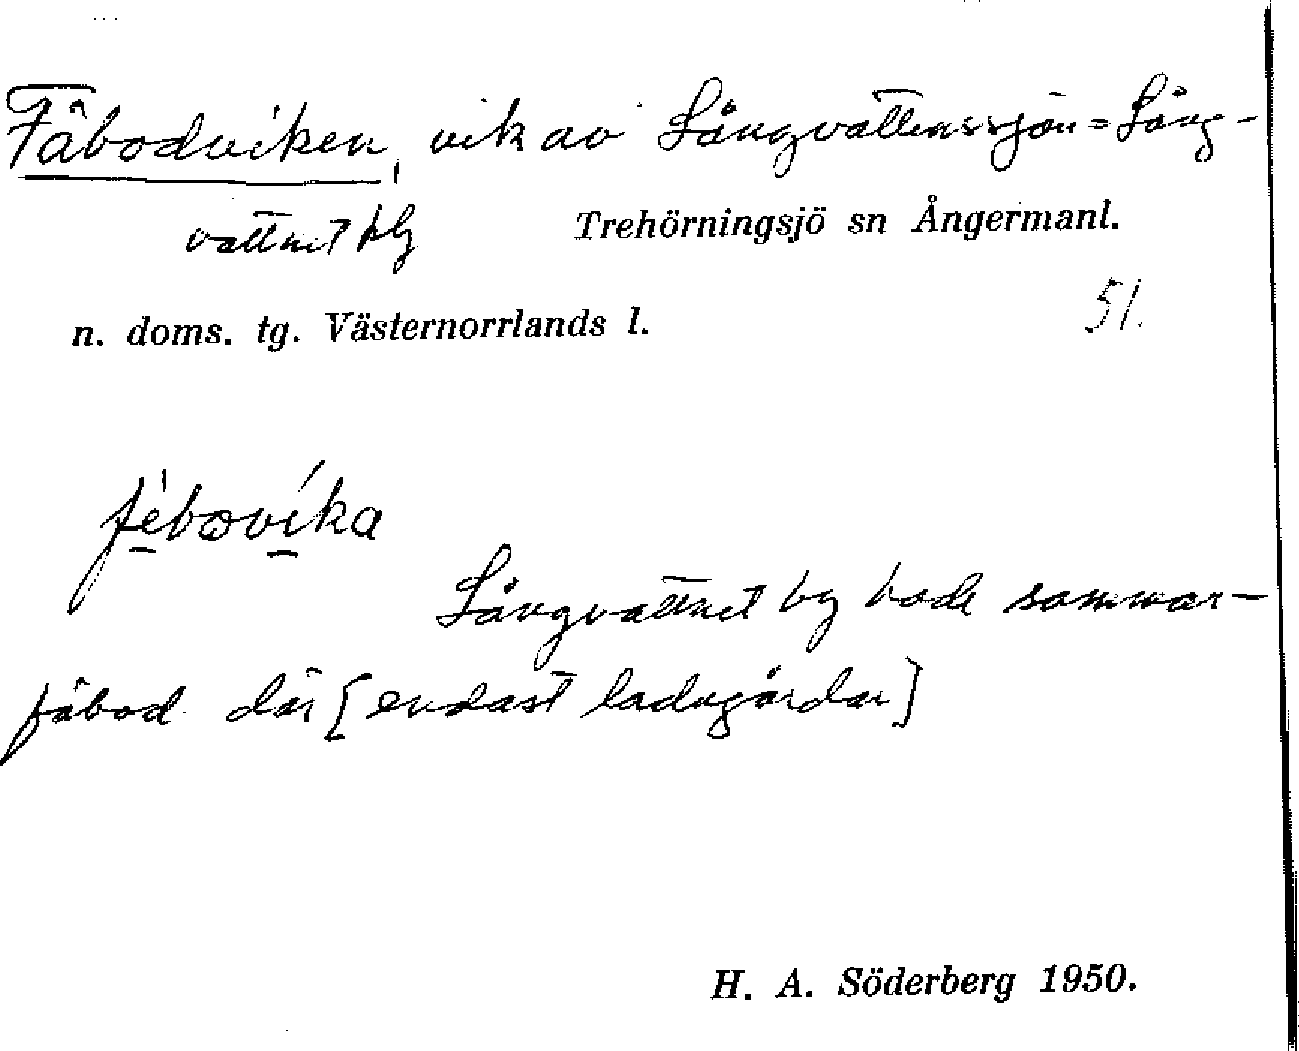 Fäbodviken, vik av Långvattenssjön = Lång-
vattnet by Trehörningsjö sn Ångermanl.
n. doms. tg. Västernorrlands l. 51.
fèbωvíka
Långvattnet by hade sommar-
fäbod där [endast ladugårdar]
H. A. Söderberg 1950.